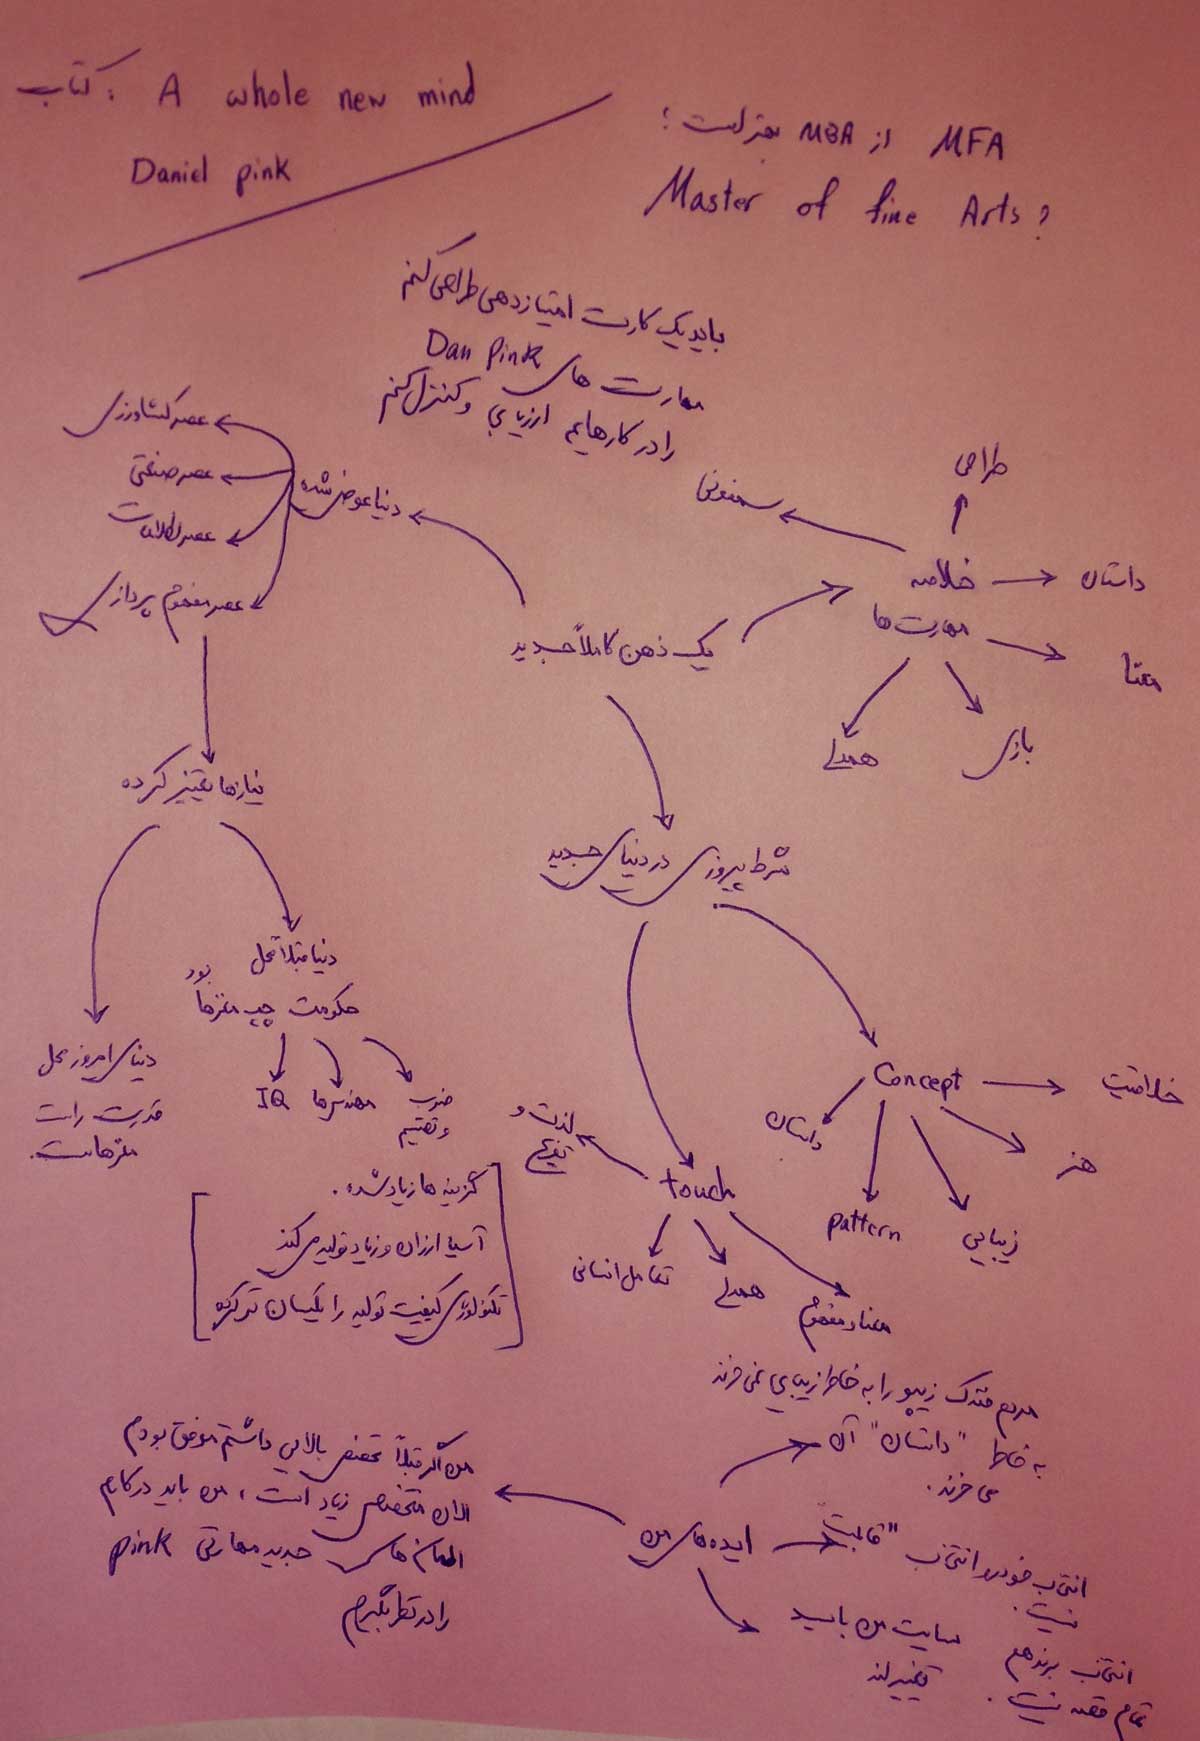 کتاب: A whole new mind
Daniel pink
MFA از MBA بهتر است؟
Master of fine Arts?
باید یک کارت امتیازدهی طراحی کنم
مهارت های Dan Pink
را در کارهایم ارزیابی و کنترل کنم
عصر کشاورزی
عصر صنعتی
عصر اطلاعات
عصر مفهوم پردازی
دنیا عوض شده
یک ذهن کاملاً جدید
خلاصه
مهارت ها
سمفونی
طراحی
داستان
معنا
بازی
همدلی
نیازها تغییر کرده
دنیا قبلاً محل
حکومت چپ مغزها
بود
IQ
مهندس ها
ضرب
و تقسیم
دنیای امروز محل
قدرت راست
مغزهاست.
گزینه ها زیاد شده.
آسیا ارزان و زیاد تولید می کند
تکنولوژی کیفیت تولید را یکسان تر کرده
شرط پیروزی در دنیای جدید
Concept
خلاقیت
هنر
زیبایی
pattern
داستان
touch
لذت و
تفریح
تعامل انسانی
همدلی
معنا و مفهوم
ایده های من
مردم فندک زیپو را به خاطر زیبایی نمی خرند
به خاطر "داستان" آن
می خرند.
انتخاب خودرو انتخاب "قابلیت"
نیست.
انتخاب برند هم
تمام قصه نیست.
سایت من باید
تغییر کند
من اگر قبلاً تخصص بالایی داشتم موفق بودم
الان متخصص زیاد است، من باید در کارم
المان های جدید مهارتی pink
را در نظر بگیرم